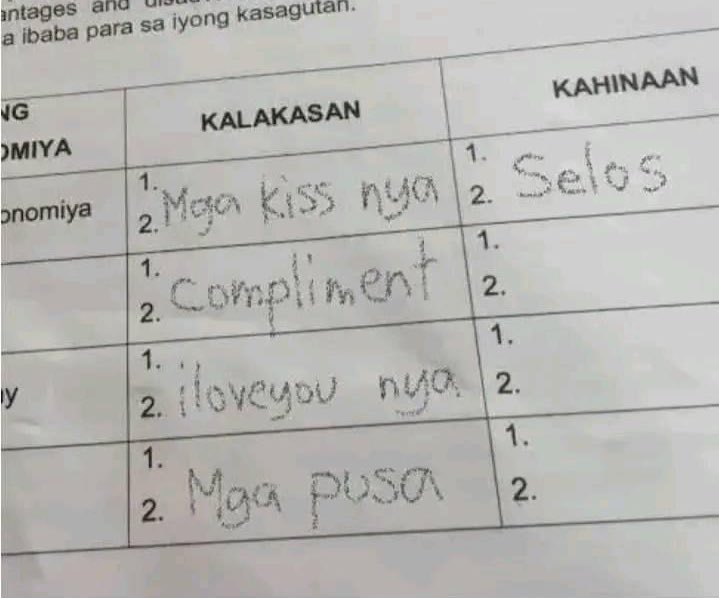 antages and
a ibaba para sa iyong kasagutan.
NG
OMIYA
KALAKASAN
KAHINAAN
onomiya
1.
2. Mga kiss nya
1.
2. Selos
1.
2. Compliment
1.
2.
y
1.
2. iloveyou nya
1.
2.
1.
2. Mga pusa
1.
2.